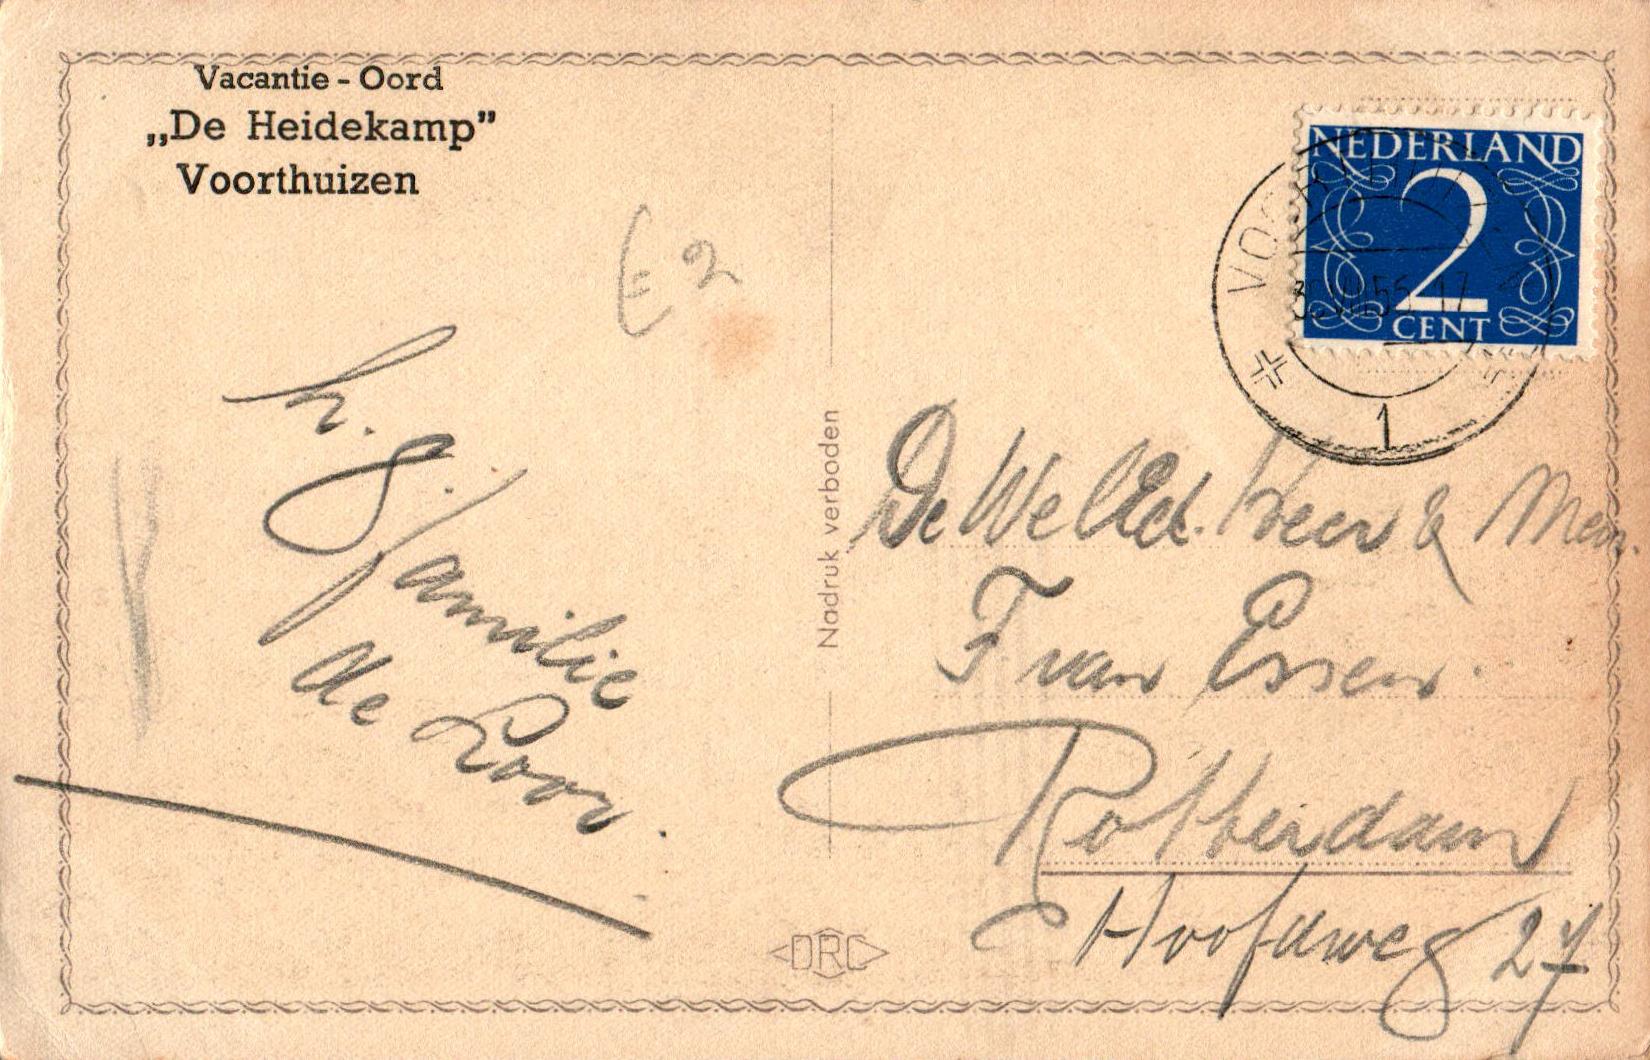 Vacantie - Oord
„De Heidekamp”
Voorthuizen
€ 2
h. g.
familie
de Loor.
Nadruk verboden
DRC
NEDERLAND
2
CENT
1
De WelEd. Heer & Mevr.
F. van Essen.
Rotterdam
Hoofdweg 27